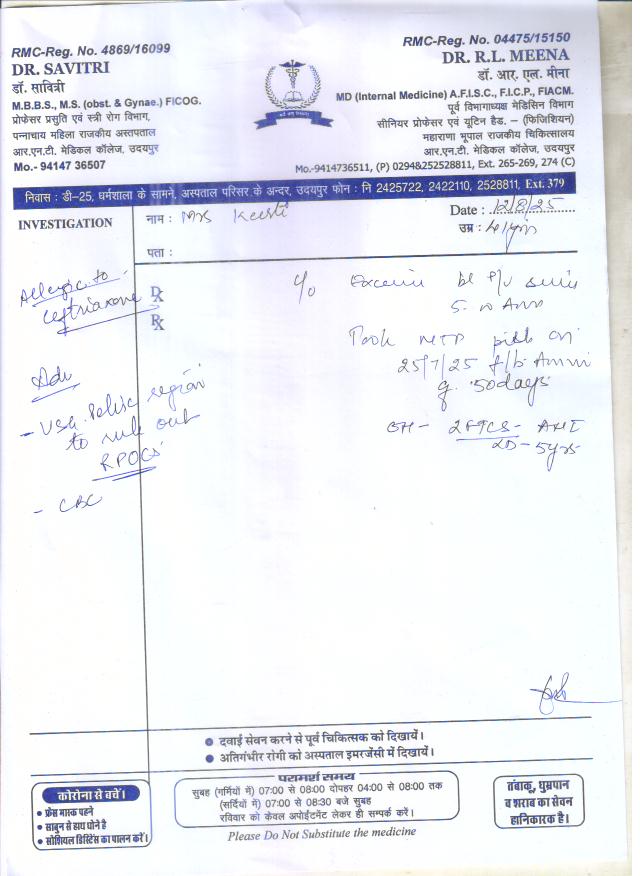 RMC-Reg. No. 4869/16099
DR. SAVITRI
डॉ. सावित्री
M.B.B.S., M.S. (obst. & Gynae.) FICOG.
प्रोफेसर प्रसुति एवं स्त्री रोग विभाग,
पन्नाचाय महिला राजकीय अस्तपताल
आर.एन.टी. मेडिकल कॉलेज, उदयपुर
Mo.- 94147 36507
RMC-Reg. No. 04475/15150
DR. R.L. MEENA
डॉ. आर. एल. मीना
MD (Internal Medicine) A.F.I.S.C., F.I.C.P., FIACM.
पूर्व विभागाध्यक्ष मेडिसिन विभाग
सीनियर प्रोफेसर एवं यूटिन हैड. – (फिजिशियन)
महाराणा भूपाल राजकीय चिकित्सालय
आर.एन.टी. मेडिकल कॉलेज, उदयपुर
Mo.-9414736511, (P) 0294&252528811, Ext. 265-269, 274 (C)
निवास : डी-25, धर्मशाला के सामने, अस्पताल परिसर के अन्दर, उदयपुर फोन : नि 2425722, 2422110, 2528811, Ext. 379
INVESTIGATION
नाम : Mrs
Date : 12/8/25
उम्र :
पता :
Allergic to
ceftriaxone
Rx
Rx
c/o
Took MTP pills on
25/7/25 f/b
50days
Adv
- USG Pelvic region
to rule out
RPOCS
- CBC
OH- 2FTCS-
LD- 5yrs
दवाई सेवन करने से पूर्व चिकित्सक को दिखायें।
अतिगंभीर रोगी को अस्पताल इमरजेंसी में दिखायें।
कोरोना से बचें।
फ्रेस मास्क पहने
साबुन से हाथ धोने है
सोशियल डिस्टिंस का पालन करें।
परामर्श समय
सुबह (गर्मियों में) 07:00 से 08:00 दोपहर 04:00 से 08:00 तक
(सर्दियों में) 07:00 से 08:30 बजे सुबह
रविवार को केवल अपोईंटमेंट लेकर ही सम्पर्क करें।
Please Do Not Substitute the medicine
तंबाकू, धुम्रपान
व शराब का सेवन
हानिकारक है।